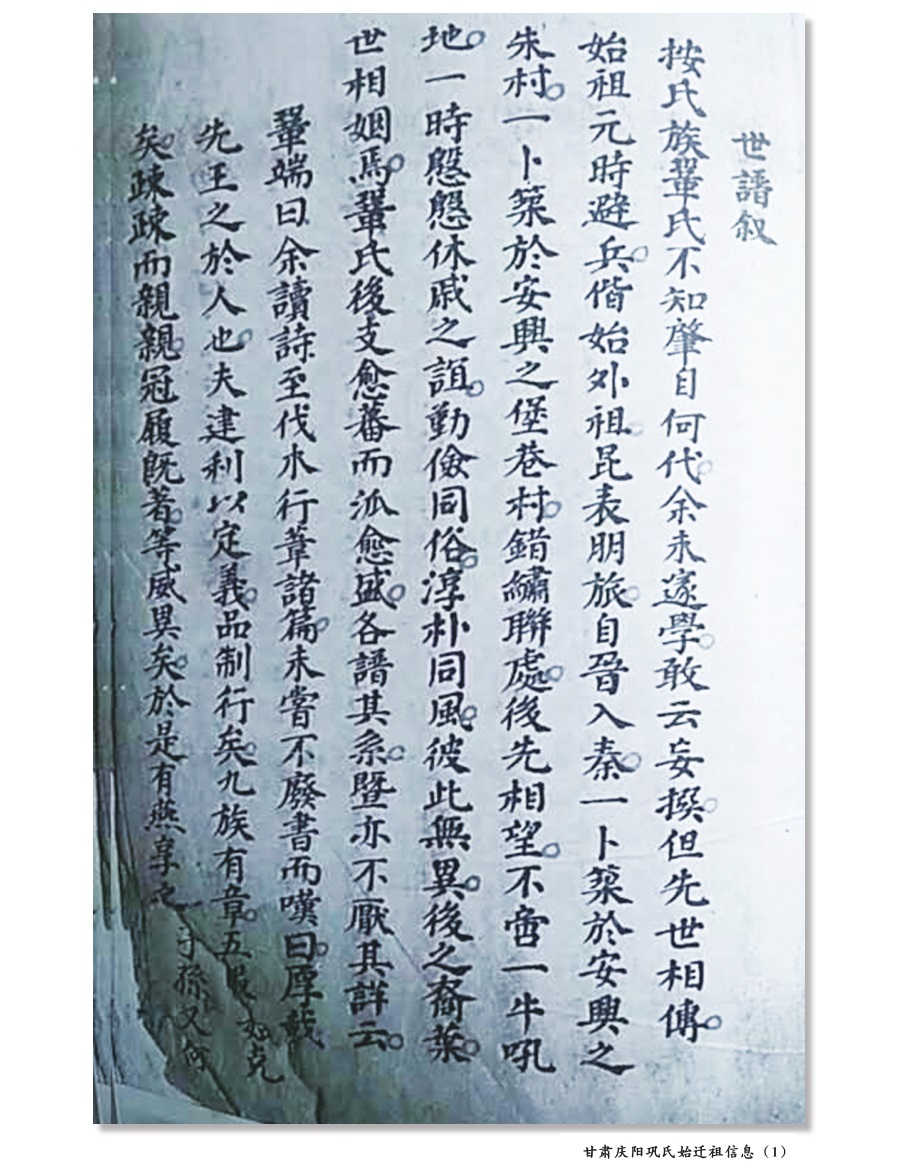 世譜叙
按氏族鞏氏不知肇自何代余未遂學敢云妄撰但先世相傳
始祖元時避兵偕始外祖昆表朋旅自晉入秦一卜築於安興之
朱村一卜築於安興之堡巷村錯繡聯處後先相望不啻一牛吼
地一時慇慇休戚之誼勤儉同俗淳朴同風彼此無異後之裔葉
世相姻焉鞏氏後支愈蕃而派愈盛各譜其系暨亦不厭其詳云
鞏端曰余讀詩至伐木行葦諸篇未嘗不廢書而嘆曰厚哉
先王之於人也夫建利以定義品制行矣九族有章五服
矣疎疎而親親冠履既著等威異矣於是有燕享之
克
子孫又何
甘肃庆阳巩氏始迁祖信息（1）